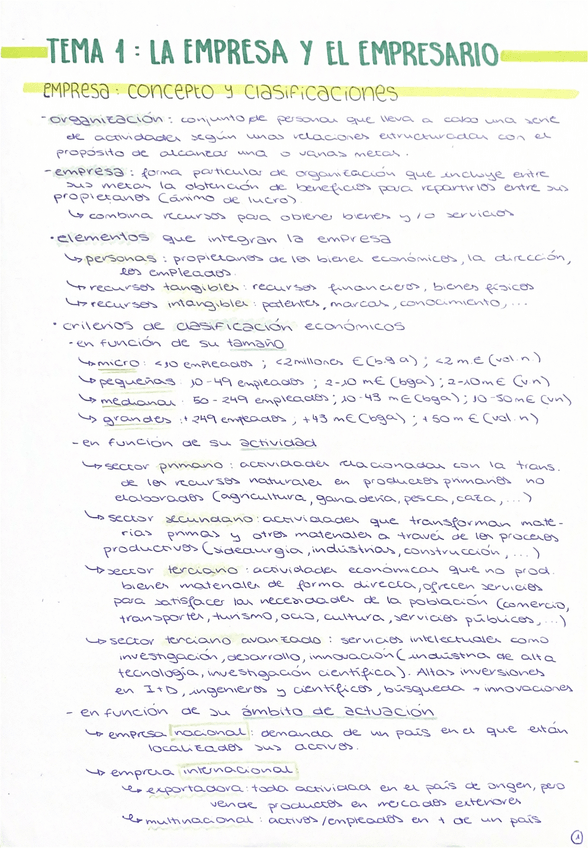 TEMA 1 : LA EMPRESA Y EL EMPRESARIO
EMPRESA: CONCEPTO Y CLASIFICACIONES
- organización : conjunto de personas que lleva a cabo una serie
de actividades según unas relaciones estructuradas con el
propósito de alcanzar una o varias metas.
- empresa : forma particular de organización que incluye entre
sus metas la obtención de beneficios para repartirlos entre sus
propietarios (ánimo de lucro).
↳ combina recursos para obtener bienes y/o servicios
· elementos que integran la empresa
↳ personas : propietarios de los bienes económicos, la dirección,
los empleados.
↳ recursos tangibles : recursos financieros, bienes físicos
↳ recursos intangibles : patentes, marcas, conocimiento, ...
· criterios de clasificación económicos
- en función de su tamaño
↳ micro : <10 empleados ; <2 millones € (bga) ; <2 m.€ (vol. n)
↳ pequeñas : 10-49 empleados ; 2-10 m€ (bga) ; 2-10 m€ (v n)
↳ medianas : 50-249 empleados ; 10-43 m€ (bga) ; 10-50 m€ (vn)
↳ grandes : +249 empleados , +43 m€ (bga) ; +50 m€ (vol. n)
- en función de su actividad
↳ sector primario : actividades relacionadas con la trans.
de los recursos naturales en productos primarios no
elaborados (agricultura, ganadería, pesca, caza, ...)
↳ sector secundario : actividades que transforman mate-
rias primas y otros materiales a través de los procesos
productivos (siderurgia, industrias, construcción, ...)
↳ sector terciario : actividades económicas que no prod.
bienes materiales de forma directa, ofrecen servicios
para satisfacer las necesidades de la población (comercio,
transportes, turismo, ocio, cultura, servicios públicos, ...)
↳ sector terciario avanzado : servicios intelectuales como
investigación, desarrollo, innovación (industria de alta
tecnología, investigación científica). Altas inversiones
en I+D, ingenieros y científicos, búsqueda + innovaciones
- en función de su ámbito de actuación
↳ empresa nacional : demanda de un país en el que están
localizados sus activos.
↳ empresa internacional
↳ exportadora : toda actividad en el país de origen, pero
vende productos en mercados exteriores
↳ multinacional : activos/empleados en + de un país
1